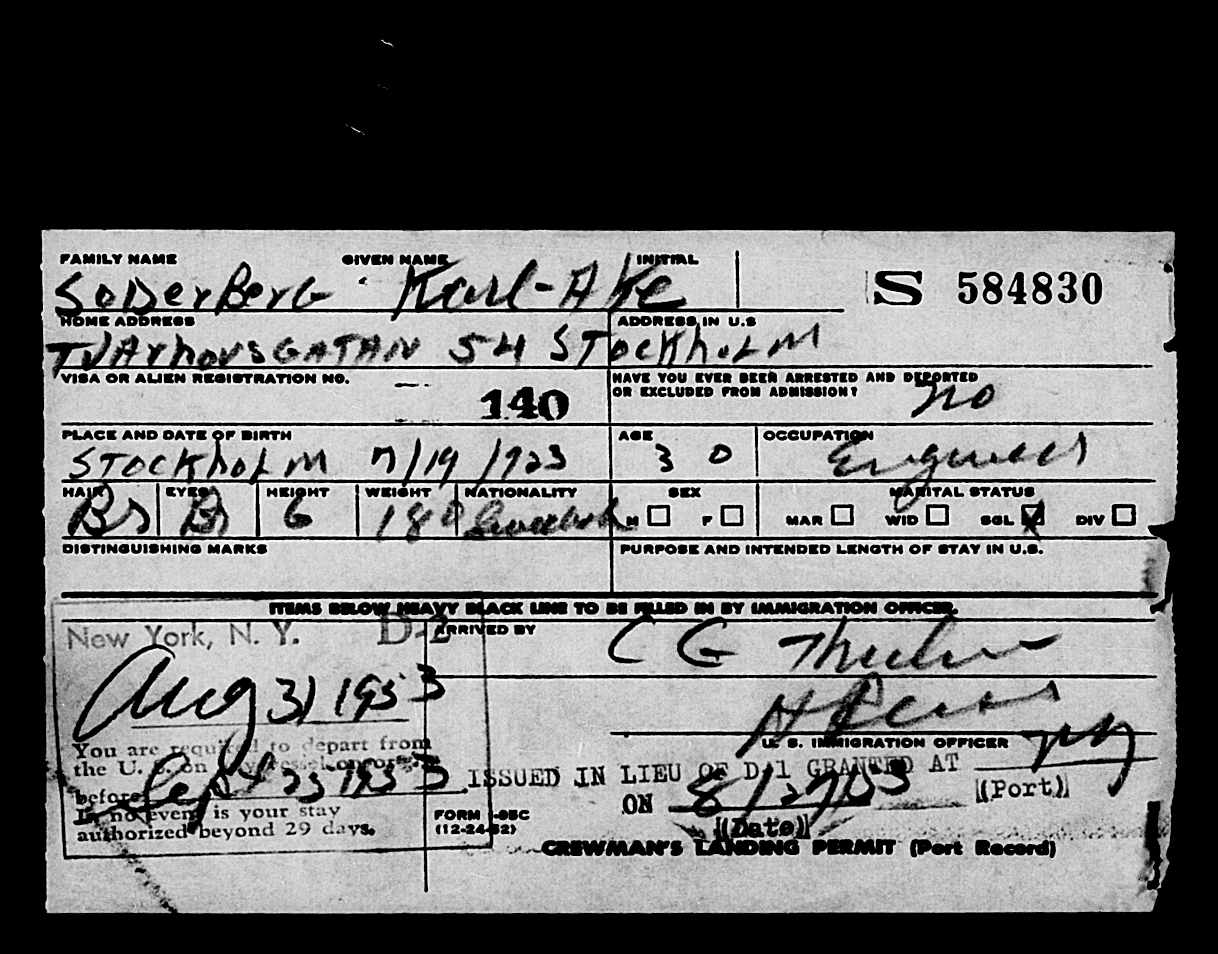 FAMILY NAME GIVEN NAME INITIAL
SoDerBerG Karl-AKe S 584830
HOME ADDRESS ADDRESS IN U.S
TJArhovsGATAN 54 STockhoLM
VISA OR ALIEN REGISTRATION NO. HAVE YOU EVER BEEN ARRESTED AND DEPORTED
OR EXCLUDED FROM ADMISSION?
140 no
PLACE AND DATE OF BIRTH AGE OCCUPATION
STockhoLM 7/19/1923 30
HAIR EYES HEIGHT WEIGHT NATIONALITY SEX MARITAL STATUS
Br Br 6 180 Swedish M F MAR WID SGL DIV
DISTINGUISHING MARKS PURPOSE AND INTENDED LENGTH OF STAY IN U.S.
ITEMS BELOW HEAVY BLACK LINE TO BE FILLED IN BY IMMIGRATION OFFICER.
New York, N. Y. D-2 ARRIVED BY C G Thulin
Aug 31 1953
U. S. IMMIGRATION OFFICER
You are required to depart from
the U. S. on
before Sept 23 1953 ISSUED IN LIEU OF D-1 GRANTED AT NY
(Port)
ON 8/27/53
In no event is your stay
authorized beyond 29 days.
FORM I-95C
(12-24-52)
(Date)
CREWMAN'S LANDING PERMIT (Port Record)